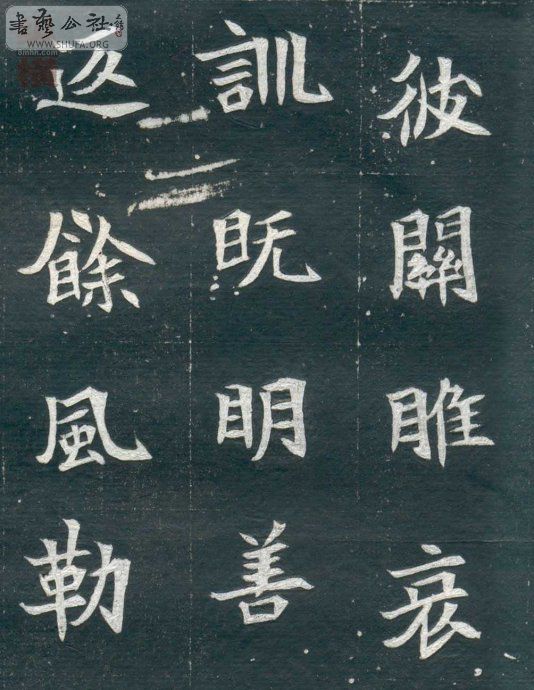 彼關雎哀
訓既明善
返餘風勒
書藝公社
WWW.SHUFA.ORG